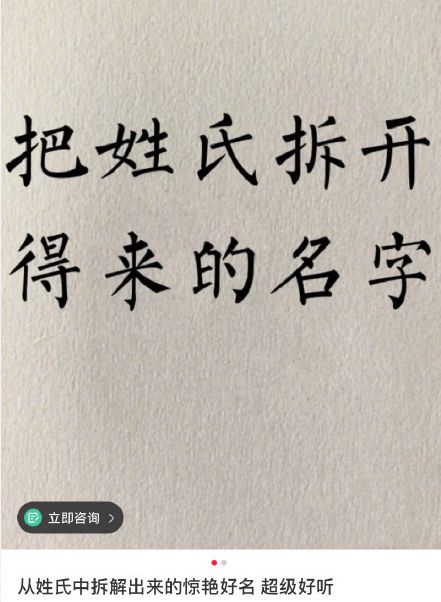 把姓氏拆开
得来的名字
立即咨询
从姓氏中拆解出来的惊艳好名 超级好听